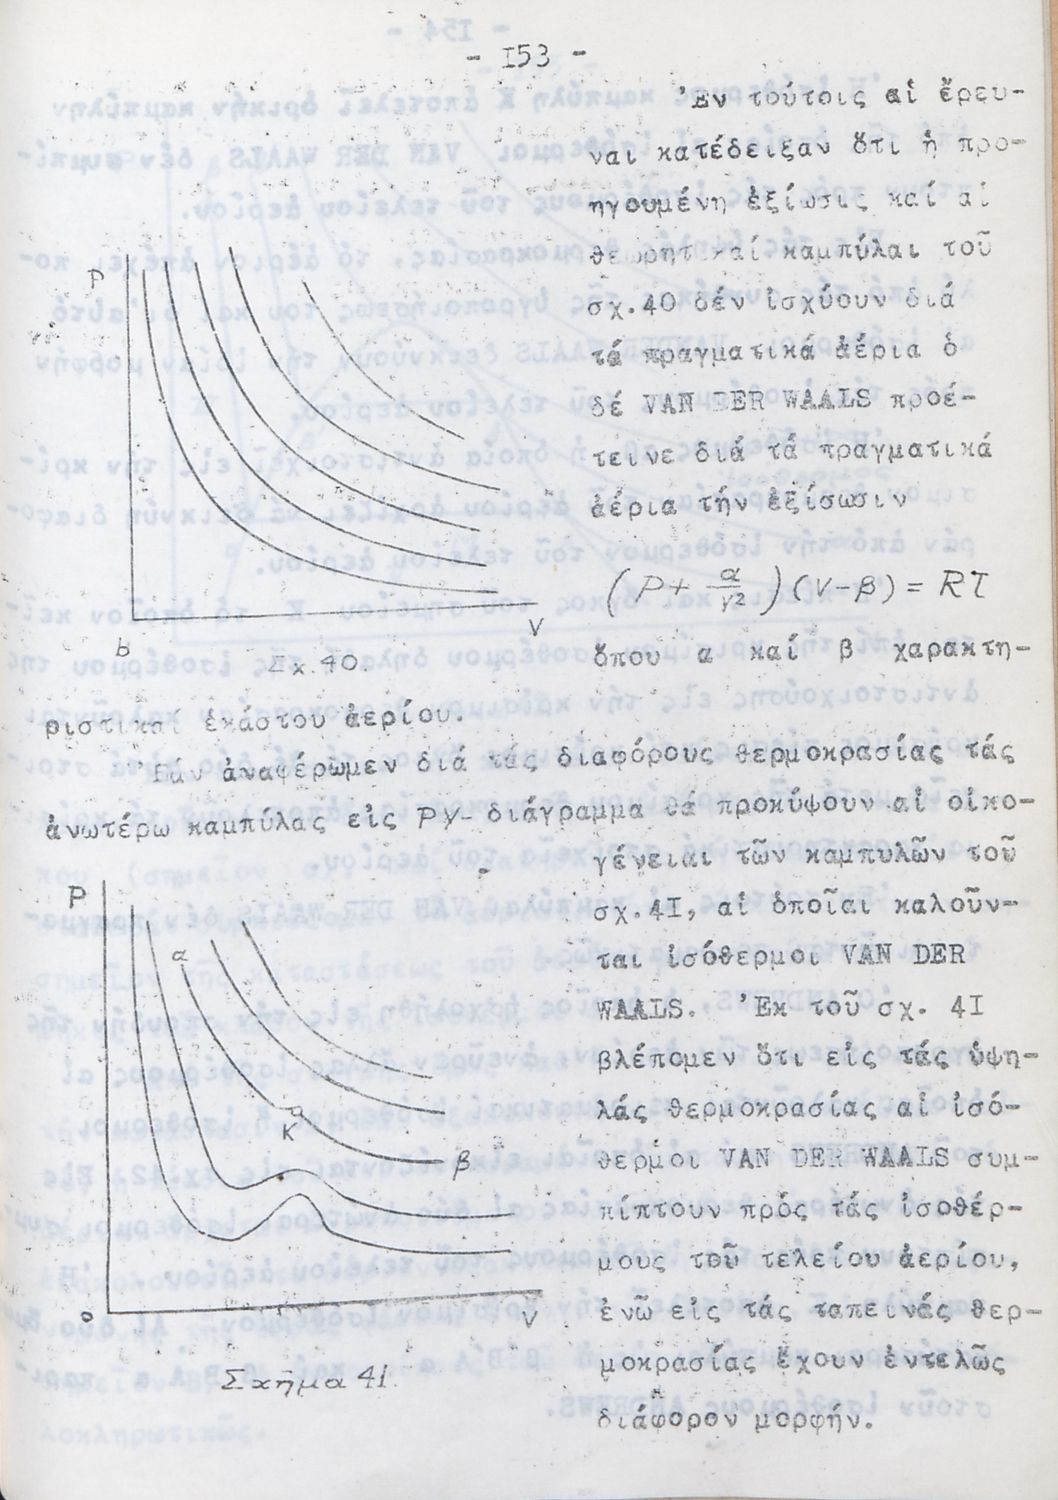 - I53 -
Ἐν τούτοις αἱ ἔρευ-
ναι κατέδειξαν ὅτι ἡ προ-
ηγουμένη ἐξίωσις καί αἱ
θεωρητικαί καμπύλαι τοῦ
σχ.40 δέν ἰσχύουν διά
τά πραγματικά ἀέρια ὁ
δέ VAN DER WAALS προέ-
τεινε διά τά πραγματικά
ἀέρια τήν ἐξίσωσιν
(P + α/V2) (V-β) = RT
P
V
b
Σχ.40.
ὅπου α καί β χαρακτη-
ριστικαί ἑκάστου ἀερίου.
Ἐάν ἀναφέρωμεν διά τάς διαφόρους θερμοκρασίας τάς
ἀνωτέρω καμπύλας εἰς PV- διάγραμμα θά προκύψουν αἱ οἰκο-
γένειαι τῶν καμπυλῶν τοῦ
σχ.4I, αἱ ὁποῖαι καλοῦν-
ται ἰσόθερμοι VAN DER
WAALS. Ἐκ τοῦ σχ. 4I
βλέπομεν ὅτι εἰς τάς ὑψη-
λάς θερμοκρασίας αἱ ἰσό-
θερμοι VAN DER WAALS συμ-
πίπτουν πρός τάς ἰσοθέρ-
μους τοῦ τελείου ἀερίου,
ἐνῶ εἰς τάς ταπεινάς θερ-
μοκρασίας ἔχουν ἐντελῶς
διάφορον μορφήν.
P
α
K
β
o
V
Σχῆμα 41.